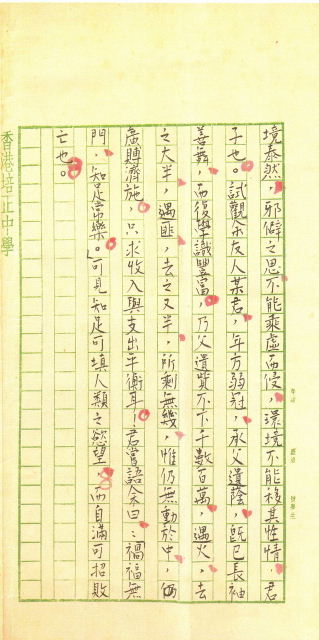 境泰然，邪僻之思不能乘虛而侵，環境不能移其性情。君
子也。試觀余友人某君，年方弱冠，承父遺蔭，旣已長袖
善舞，而復學識豐富，乃父遺貲不下千數百萬，遇火，去
之大半，遇匪，去之又半，所剩無幾，惟仍無動於中，仍
廣賻濟施，只求收入與支出平衡耳！君嘗語余曰：禍福無
門，知足常樂。」可見知足可填人類之欲望，而自滿可招敗
亡也。
香港培正中學